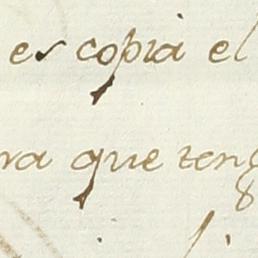 es copia el
ra que teng